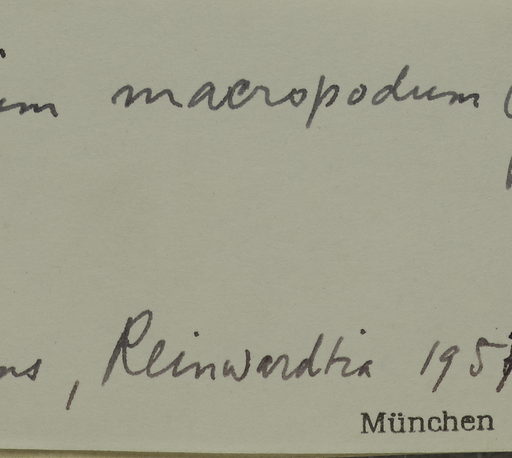 macropodum (
, Reinwardtia 195
München